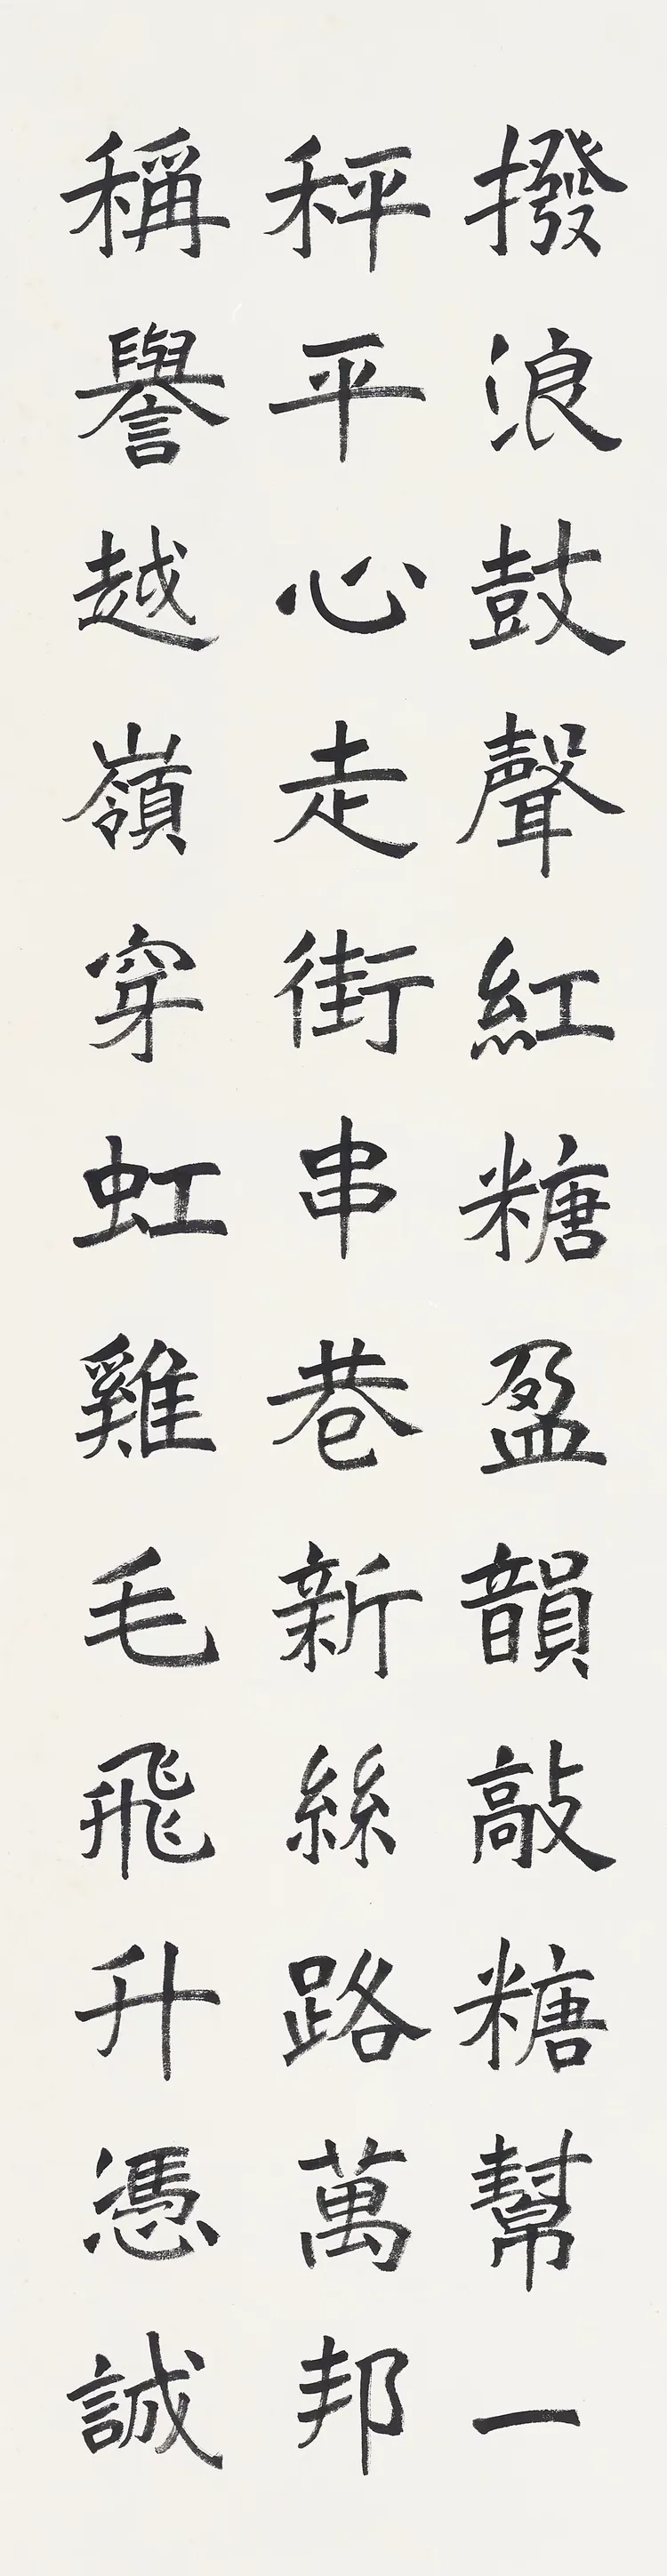 撥浪鼓聲紅糖盈韻敲糖幫一
秤平心走街串巷新絲路萬邦
稱譽越嶺穿虹雞毛飛升憑誠